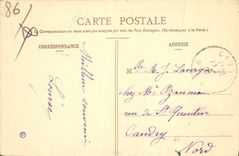 86
CARTE POSTALE
La Correspondance au recto n'est pas acceptée par tous les Pays Étrangers. (Se renseigner à la Poste)
CORRESPONDANCE
ADRESSE
Meilleur souvenir
Louise
Mlle M. J. Lavergne
chez Mr
rue de St Quentin
Caudry
Nord